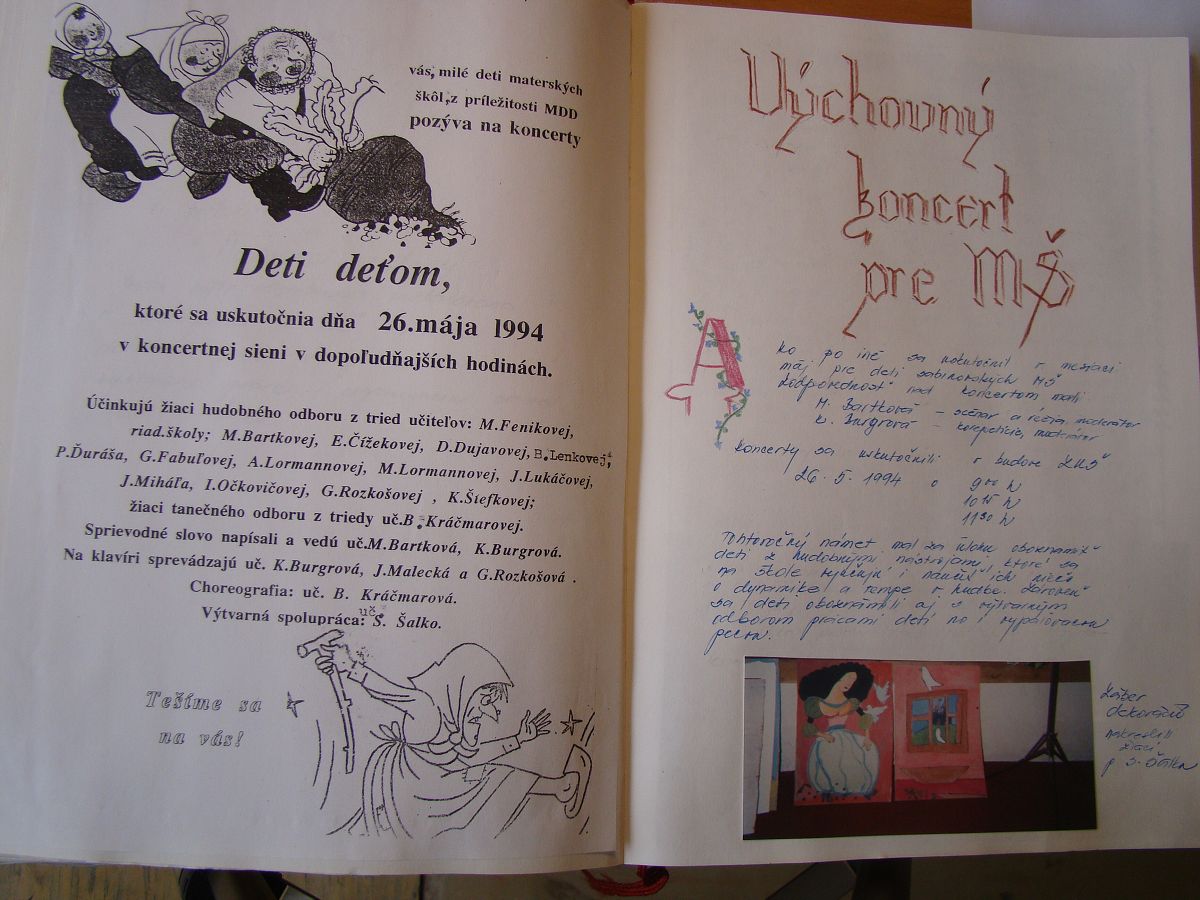 vás, milé deti materských
škôl,z príležitosti MDD
pozýva na koncerty
Deti deťom,
ktoré sa uskutočnia dňa 26.mája 1994
v koncertnej sieni v dopoľudňajších hodinách.
Účinkujú žiaci hudobného odboru z tried učiteľov: M.Fenikovej,
riad.školy; M.Bartkovej, E.Čížekovej, D.Dujavovej, B.Lenkovej,
P.Ďuráša, G.Fabuľovej, A.Lormannovej, M.Lormannovej, J.Lukáčovej,
J.Miháľa, I.Očkovičovej, G.Rozkošovej , K.Štefkovej;
žiaci tanečného odboru z triedy uč.B.Kráčmarovej.
Sprievodné slovo napísali a vedú uč.M.Bartková, K.Burgrová.
Na klavíri sprevádzajú uč. K.Burgrová, J.Malecká a G.Rozkošová .
Choreografia: uč. B. Kráčmarová.
Výtvarná spolupráca: uč. S. Šalko.
Tešíme sa
na vás!
Výchovný
koncert
pre MŠ
Ako po iné sa uskutočnil v mesiaci
máj pre deti sabinovských MŠ
Zodpovednosť nad koncertom mali
M. Bartková – scénar a réžia, moderátor
K. Burgrová – korepetície, moderátor
Koncerty sa uskutočnili v budove ZUŠ
26. 5. 1994 o 9 00 h
10 15 h
11 30 h
Tohtoročný námet mal za úlohu oboznámiť
deti z hudobnými nástrojami, ktoré sa
na škole vyučujú i naučiť ich niečo
o dynamike a tempe v hudbe. Zároveň
sa deti oboznámili aj s výtvarným
odborom prácami detí no i vypaľovacou
pecou.
Záber
dekorácií
nakreslili
žiaci
p. S. Šalka